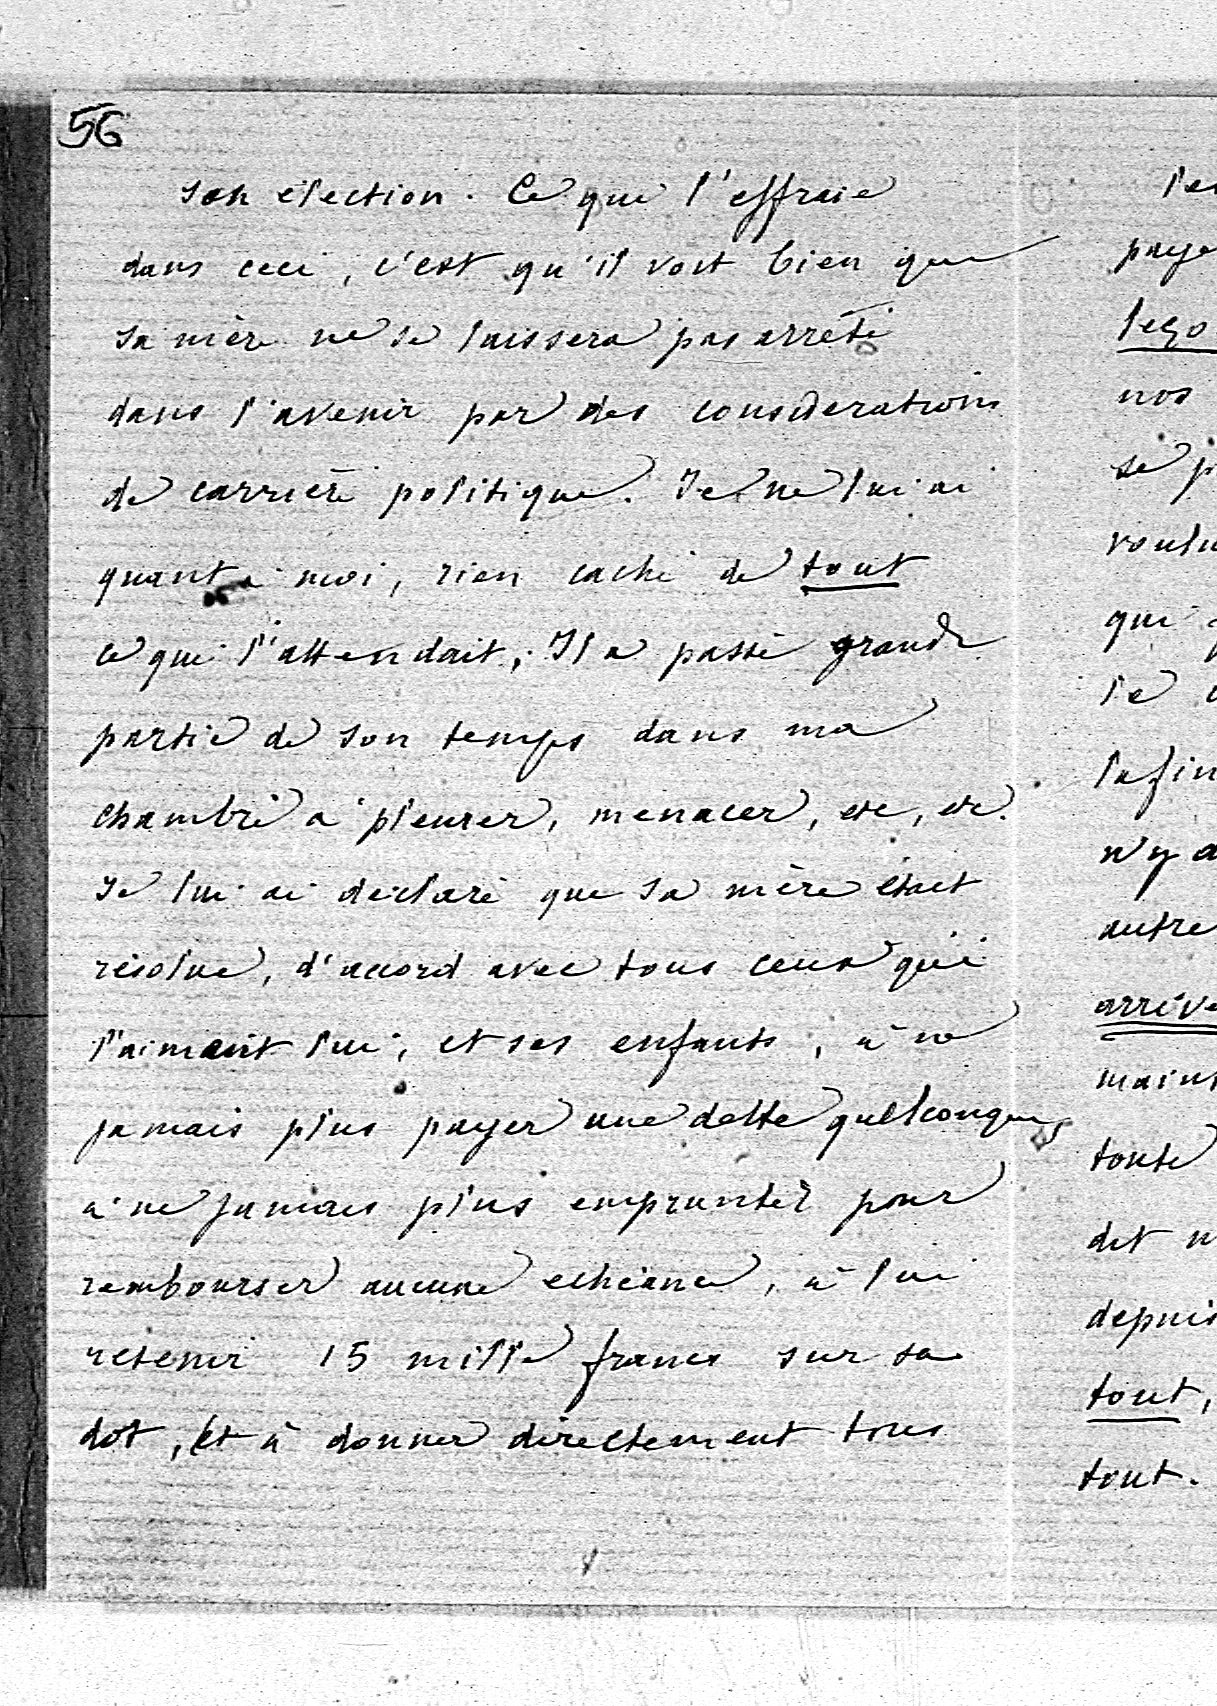 56
son élection. Ce qui l'effraie
dans ceci, c'est qu'il voit bien que
sa mère ne se laissera pas arrêté
dans l'avenir par des considerations
de carrière politique. Je ne lui ai
quant à moi, rien caché de tout
ce qui l'attendait, Il a passé grande
partie de son temps dans ma
chambre à pleurer, menacer, etc, etc.
Je lui ai déclaré que sa mère était
résolue, d'accord avec tous ceux qui
l'aimait lui, et ses enfants, à ne
jamais plus payer une dette quelconque,
à ne jamais plus emprunter pour
rembourser aucune echéance, à lui
retenir 15 mille francs sur sa
dot, et à donner directement tous
paye
nos
se p
voulu
qui
la fin
n'y a
autre
arrive
toute
dit
depuis
tout,
tout.